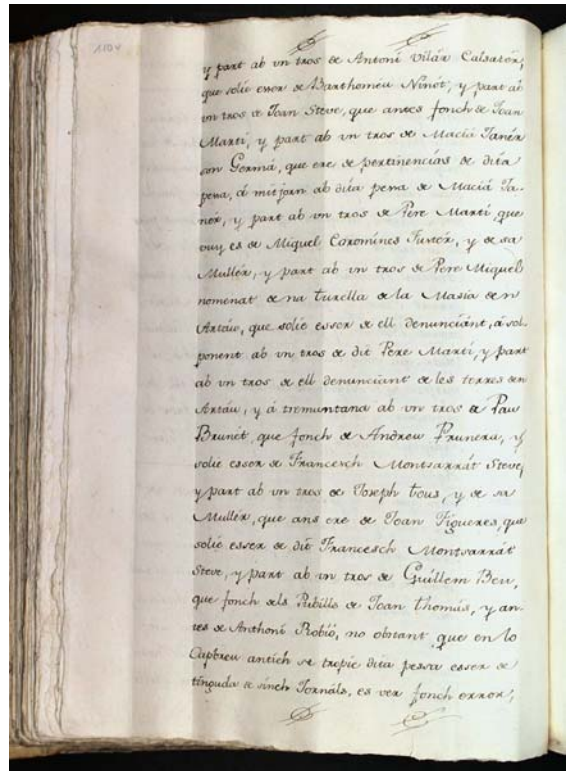 1104
y part ab vn tros de Antoni Vilár Calsatér,
que solie esser de Barthomeu Ninót, y part ab
vn tros de Joan Steve, que antes fonch de Joan
Martí, y part ab vn tros de Maciá Janér
son Germá, que ere de pertinencias de dita
pena, á mitjorn ab dita pena de Maciá Ja-
nér, y part ab vn tros de Pere Martí, que
vuy es de Miquel Caromines Fustér, y de sa
Mullér, y part ab vn tros de Pere Miquel
nomenat de na turella de la Masia den
Artáu, que solie esser de ell denunciánt, á sol
ponent ab vn tros de dit Pere Martí, y part
ab vn tros de ell denunciant de les terres den
Artáu, y á tremuntana ab vn tros de Pau
Brunét, que fonch de Andreu Prunera, y
solie esser de Francesch Montsarrát Steve,
y part ab vn tros de Joseph tous, y de sa
Mullér, que ans ere de Joan Figueres, que
solie esser de dit Francesch Montsarrát
Steve, y part ab vn tros de Guillem Beu,
que fonch dels Pubills de Joan thomás, y an-
tes de Anthoni Robió, no obstant que en lo
Capbreu antich se tropie dita pessa esser de
tinguda de sinch Jornáls, es ver fonch error,